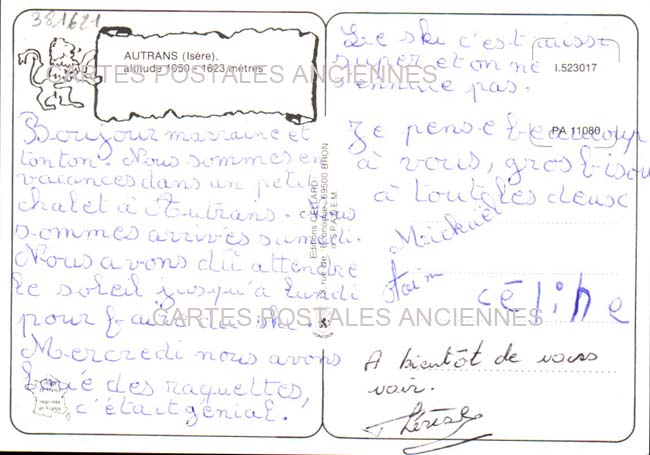 381621
AUTRANS (Isère).
altitude 1050 - 1623 mètres
CARTES POSTALES ANCIENNES
Bonjour marraine et
tonton. Nous sommes en
vacances dans un petit
chalet à Autrans. nous
sommes arrivés samedi.
Nous avons dû attendre
le soleil jusqu'à lundi
pour faire du ski.
Mercredi nous avons
loué des raquettes,
c'était génial.
imprimé
en France
Editions CELLARD
69500 BRON
Le ski c'est aussi
super et on ne
s'ennuie pas.
I.523017
PA 11080
Je pense beaucoup
à vous, gros bisou
à toutles deux
Mickaël
céline
CARTES POSTALES ANCIENNES
A bientôt de vous
voir.
Thérèse